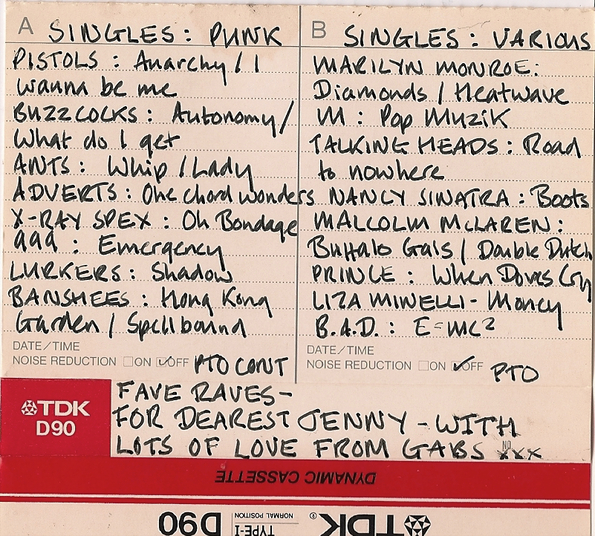 A SINGLES: PUNK
PISTOLS: Anarchy / I
wanna be me
BUZZCOCKS: Autonomy/
What do I get
ANTS: Whip / Lady
ADVERTS: One chord wonders
X-RAY SPEX: Oh Bondage
999: Emergency
LURKERS: Shadow
BANSHEES: Hong Kong
Garden / Spellbound
DATE/TIME
NOISE REDUCTION ON OFF PTO CONT
B SINGLES: VARIOUS
MARILYN MONROE:
Diamonds / Heatwave
M: Pop Muzik
TALKING HEADS: Road
to nowhere
NANCY SINATRA: Boots
MALCOLM McLAREN:
Buffalo Gals / Double Dutch
PRINCE: When Doves Cry
LIZA MINELLI - Money
B.A.D.: E=MC2
DATE/TIME
NOISE REDUCTION ON OFF PTO
TDK
D90
FAVE RAVES -
FOR DEAREST JENNY - WITH
LOTS OF LOVE FROM GABS xxx
DYNAMIC CASSETTE
TDK® TYPE-I NORMAL POSITION D90